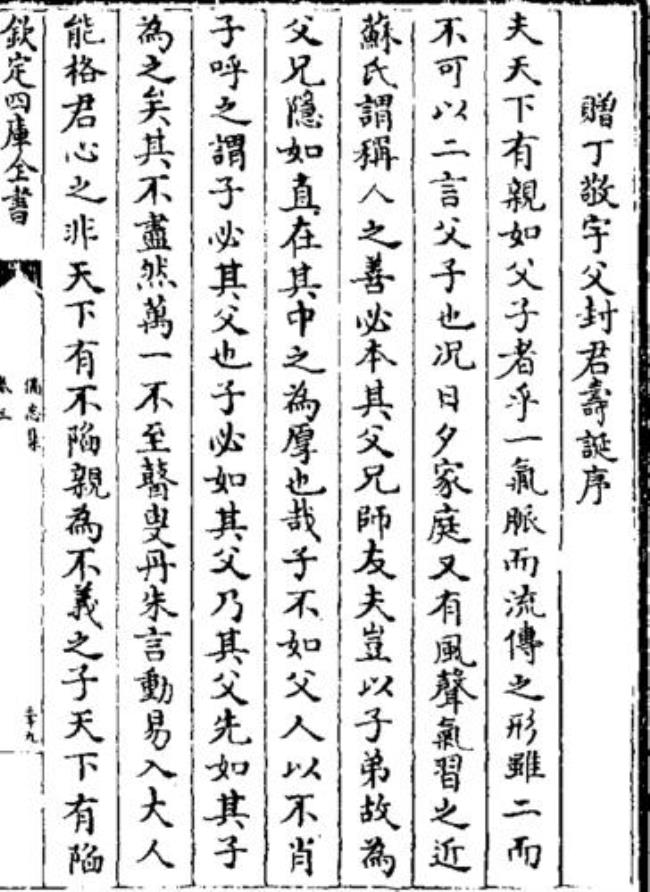 贈丁敬宇父封君壽誕序
夫天下有親如父子者乎一氣脈而流傳之形雖二而
不可以二言父子也况日夕家庭又有風聲氣習之近
蘇氏謂稱人之善必本其父兄師友夫豈以子弟故為
父兄隱如直在其中之為厚也哉子不如父人以不肖
子呼之謂子必其父也子必如其父乃其父先如其子
為之矣其不盡然萬一不至瞽叟丹朱言動易入大人
能格君心之非天下有不陷親為不義之子天下有陷
欽定四庫全書
偶志集
卷五